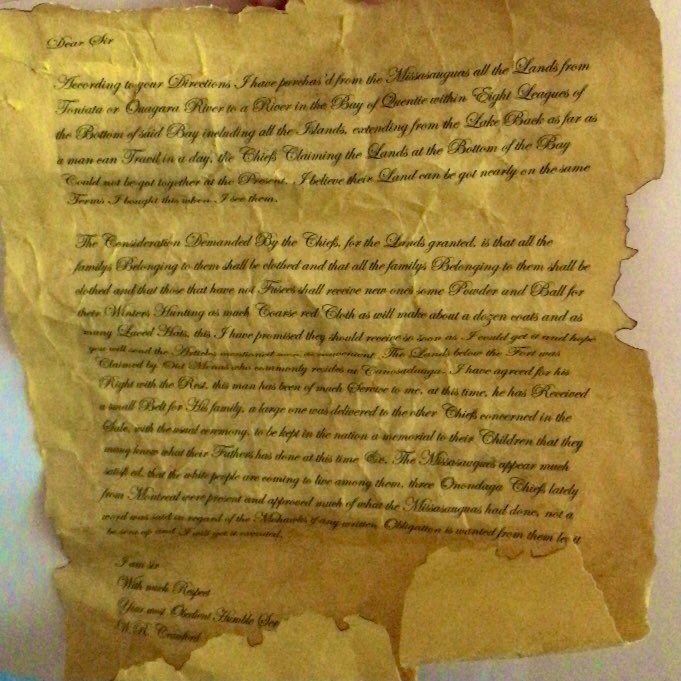 Dear Sir
According to your Directions I have purchas'd from the Missasauguas all the Lands from
Toniata or Onagara River to a River in the Bay of Quentie within Eight Leagues of
the Bottom of said Bay including all the Islands, extending from the Lake Back as far as
a man can Travil in a day, the Chiefs Claiming the Lands at the Bottom of the Bay
Could not be got together at the Present, I believe their Land can be got nearly on the same
Terms I bought this when I see them.
The Consideration Demanded By the Chiefs, for the Lands granted, is that all the
familys Belonging to them shall be clothed and that all the familys Belonging to them shall be
clothed and that those that have not Fusees shall receive new ones some Powder and Ball for
their Winters Hunting as much Coarse red Cloth as will make about a dozen coats and as
many Laced Hats, this I have promised they should receive so soon as I could get it and hope
you will send the Articles mentioned soon as convenient. The Lands below the Fort was
Claimed by Old who commonly resides at Canosadauga. I have agreed for his
Right with the Rest, this man has been of much Service to me, at this time, he has Received
a small Belt for His family, a large one was delivered to the other Chiefs concerned in the
Sale, with the usual ceremony, to be kept in the nation a memorial to their Children that they
many know what their Fathers has done at this time &c, The Missasaugues appear much
satisfied, that the white people are coming to live among them, three Onondaga Chiefs lately
from Montreal were present and approved much of what the Missasauguas had done, not a
word was said in regard of the Mohawks if any written Obligation is wanted from them let it
be sent up and I will get it executed.
I am sir
With much Respect
Your most Obedient Humble Ser
W. R. Crawford